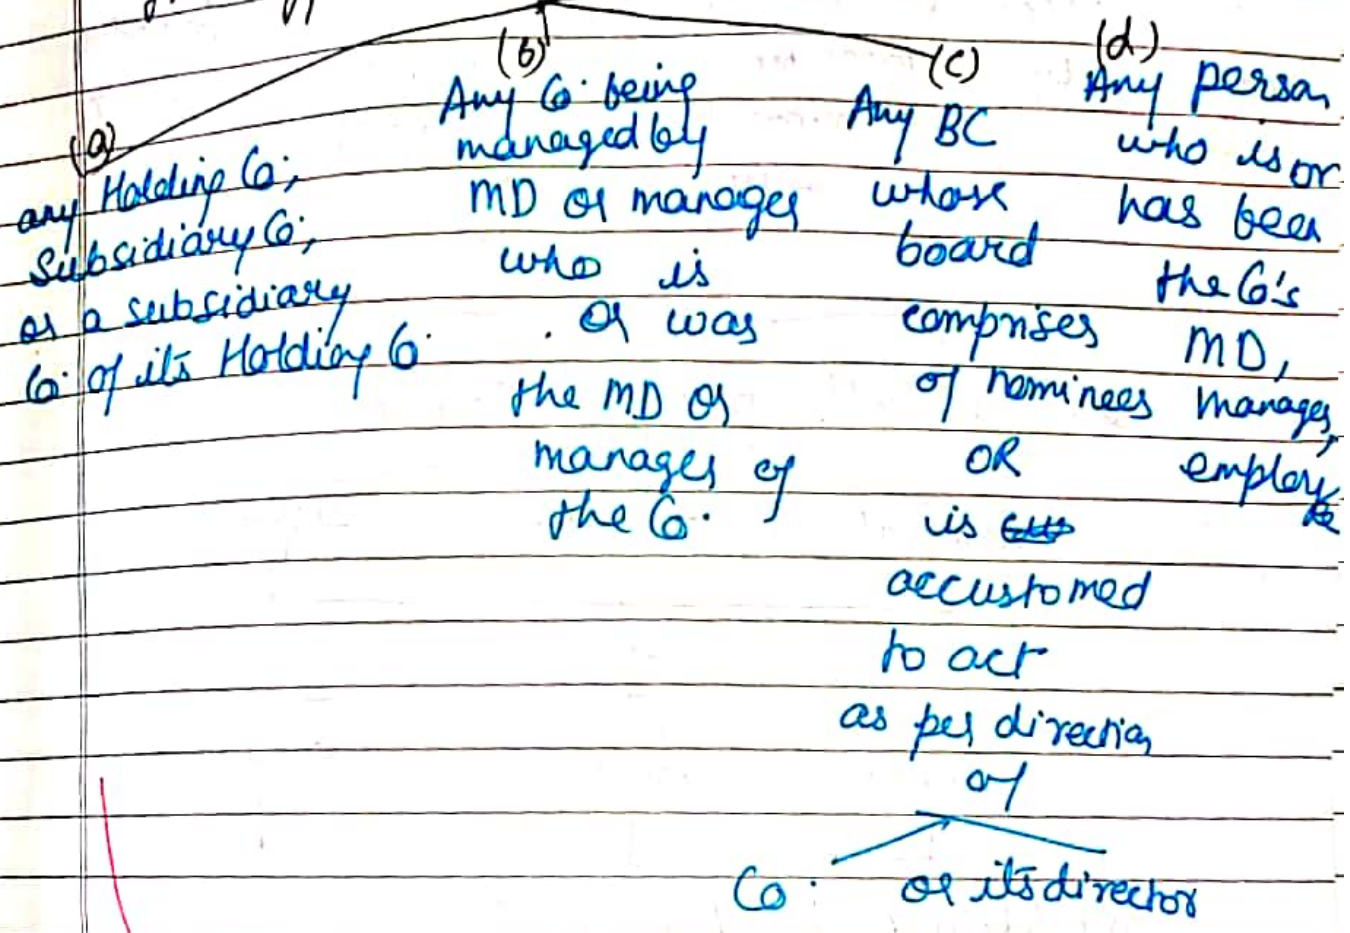 (a)
any Holding Co;
Subsidiary Co;
or a subsidiary
Co. of its Holding Co.
(b)
Any Co. being
managed by
MD or manager
who is
or was
the MD or
manager of
the Co.
(c)
Any BC
whose
board
comprises
of nominees
OR
is
accustomed
to act
as per direction
of
Co. or its director
(d)
Any person
who is or
has been
the Co's
MD,
manager,
employee